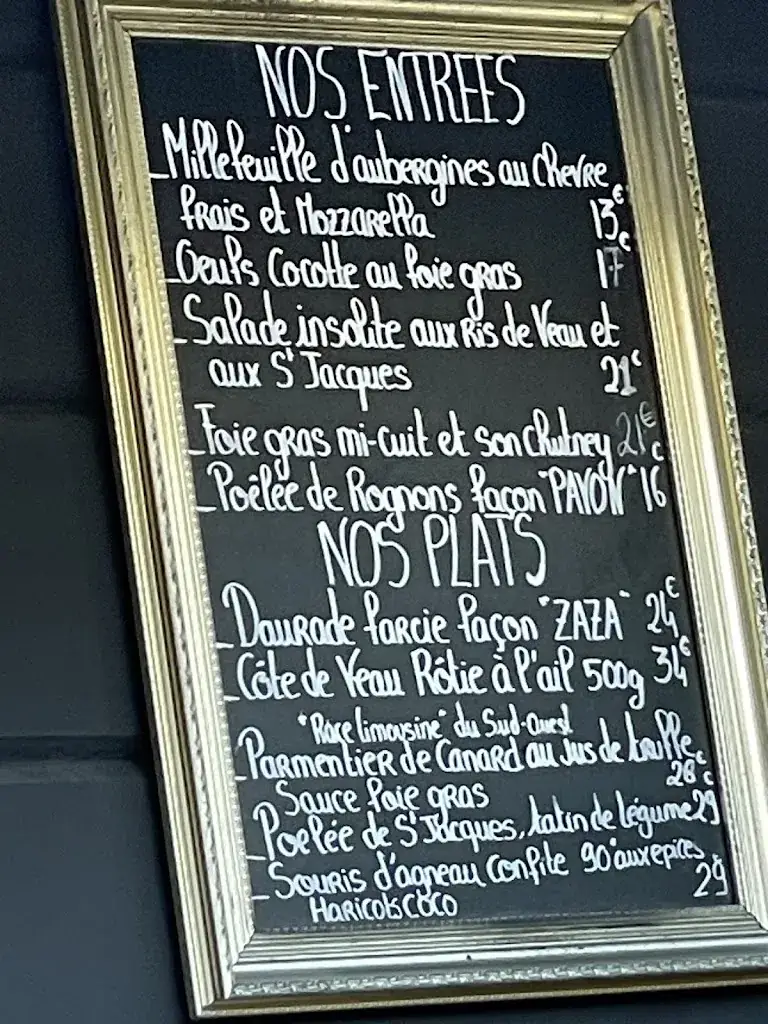 NOS ENTREES
_Millefeuille d'aubergines au chevre
frais et Mozzarella 13€
_Oeufs Cocotte au foie gras 17€
_Salade insolite aux Ris de Veau et
aux St Jacques 21€
_Foie gras mi-cuit et son Chutney 21€
_Poêlée de Rognons façon "PAYON" 16€
NOS PLATS
_Daurade farcie façon "ZAZA" 24€
_Côte de Veau Rôtie à l'ail 500g 34€
"Race limousine" du Sud-Ouest
_Parmentier de Canard au jus de truffe
Sauce foie gras 28€
_Poelée de St Jacques, tatin de légume 29€
_Souris d'agneau confite 90° aux epices
Haricots coco 29€